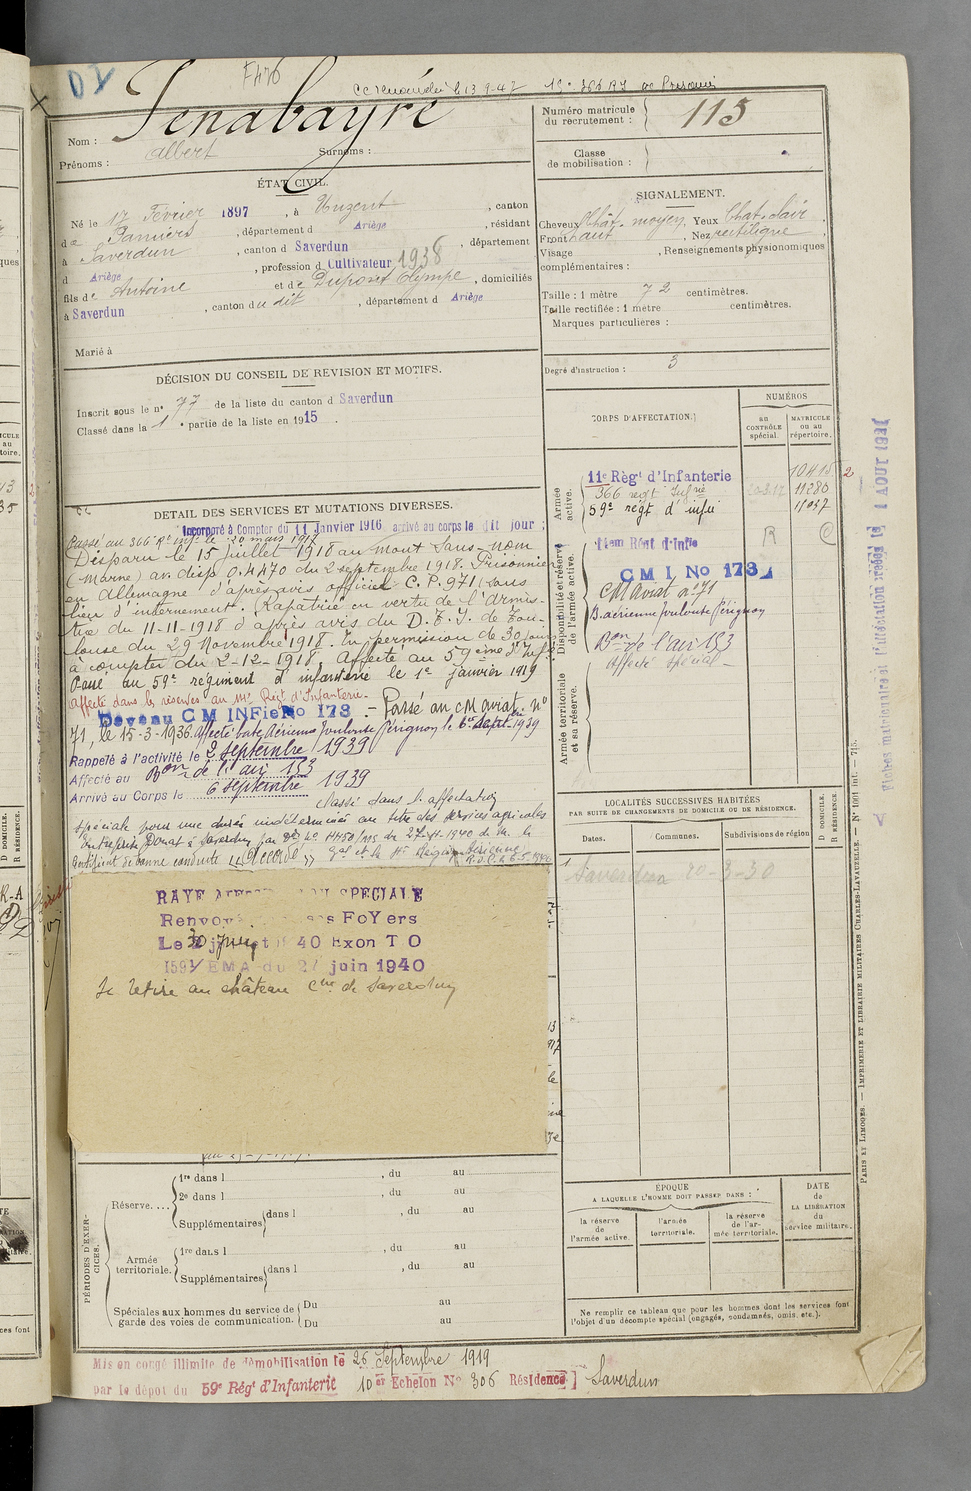 F476
Nom : Senabayré
Prénoms : Albert Surnoms :
Numéro matricule du recrutement : 115
Classe de mobilisation :
ÉTAT CIVIL.
Né le 17 Février 1897, à Unzent, canton
de Pamiers, département d Ariège, résidant
à Saverdun, canton d Saverdun, département
d Ariège, profession d Cultivateur 1938
fils de Antoine et de Dupont Olympe, domiciliés
à Saverdun, canton du dit, département d Ariège
Marié à
SIGNALEMENT.
Cheveux Chât. moyen Yeux Chat. clair
Front haut, Nez rectiligne,
Visage, Renseignements physionomiques
complémentaires :
Taille : 1 mètre 72 centimètres.
Taille rectifiée : 1 mètre centimètres.
Marques particulières :
Degré d'instruction : 3
DÉCISION DU CONSEIL DE REVISION ET MOTIFS.
Inscrit sous le n° 77 de la liste du canton d Saverdun
Classé dans la 1e partie de la liste en 1915.
CORPS D'AFFECTATION.
NUMÉROS
au CONTRÔLE spécial.
MATRICULE ou au répertoire.
Armée active.
11e Règt d'Infanterie 10415
366 regt Infrie 11280
59e régt d'infie 11057
Disponibilité et réserve de l'armée active.
14em Rént d'Infie
C M I No 173
CM Aviat n° 71
B. aérienne Toulouse Pérignon
Bon de l'air 153
Affecté spécial
Armée territoriale et sa réserve.
DETAIL DES SERVICES ET MUTATIONS DIVERSES.
Incorporé à Compter du 11 Janvier 1916, arrivé au corps le dit jour ;
Passé au 366 Rt inf. le 20 mars 1917
Disparu le 15 juillet 1918 au Mont Sans-nom
(Marne) av. disp. 0.4470 du 2 septembre 1918. Prisonnier
en Allemagne d'après avis officiel C.P. 971 (sans
lieu d'internement. Rapatrié en vertu de l'Armis-
tice du 11-11-1918 d'après avis du D.T.I. de Tou-
louse du 29 Novembre 1918. En permission de 30 jours
à compter du 2-12-1918. Affecté au 59eme d'Infie
Passé au 59e régiment d'infanterie le 1er janvier 1919
Affecté dans les réserves au Régt d'Infanterie.
Devenu C M INFie No 173 - Passé au CM Aviat. n°
71, le 15-3-1936. Affecté base Aérienne Toulouse Pérignon le 1939
Rappelé à l'activité le 2 Septembre 1939
Affecté au Bon de l'air 153
Arrivé au Corps le 6 septembre 1939
Classé dans l'affectation
spéciale pour une durée indéterminée au titre des services agricoles
Certificat de bonne conduite "Accordé"
RAYE SPECIALE
Renvoyé FoYers
Le 40 Exon T O
1591/EMA du 27 juin 1940
Se retire au château Cne de Saverdun
LOCALITÉS SUCCESSIVES HABITÉES
PAR SUITE DE CHANGEMENTS DE DOMICILE OU DE RÉSIDENCE.
Dates. Communes. Subdivisions de région
D DOMICILE. R RÉSIDENCE.
Saverdun 20-3-30
PÉRIODES D'EXERCICES.
Réserve....
1re dans l, du au
2e dans l, du au
Supplémentaires dans l, du au
Armée territoriale.
1re dans l, du au
Supplémentaires dans l, du au
Spéciales aux hommes du service de garde des voies de communication.
Du au
Du au
ÉPOQUE
A LAQUELLE L'HOMME DOIT PASSER DANS :
la réserve de l'armée active.
l'armée territoriale.
la réserve de l'armée territoriale.
DATE de LA LIBÉRATION du service militaire.
Ne remplir ce tableau que pour les hommes dont les services font
l'objet d'un décompte spécial (engagés, condamnés, omis, etc.).
Mis en congé illimité de démobilisation le 26 Septembre 1919
par le dépôt du 59e Régt d'Infanterie 10er Echelon No 306 Résidence Saverdun
PARIS ET LIMOGES. — IMPRIMERIE ET LIBRAIRIE MILITAIRES CHARLES-LAVAUZELLE. — N° 1001 int. — 715.